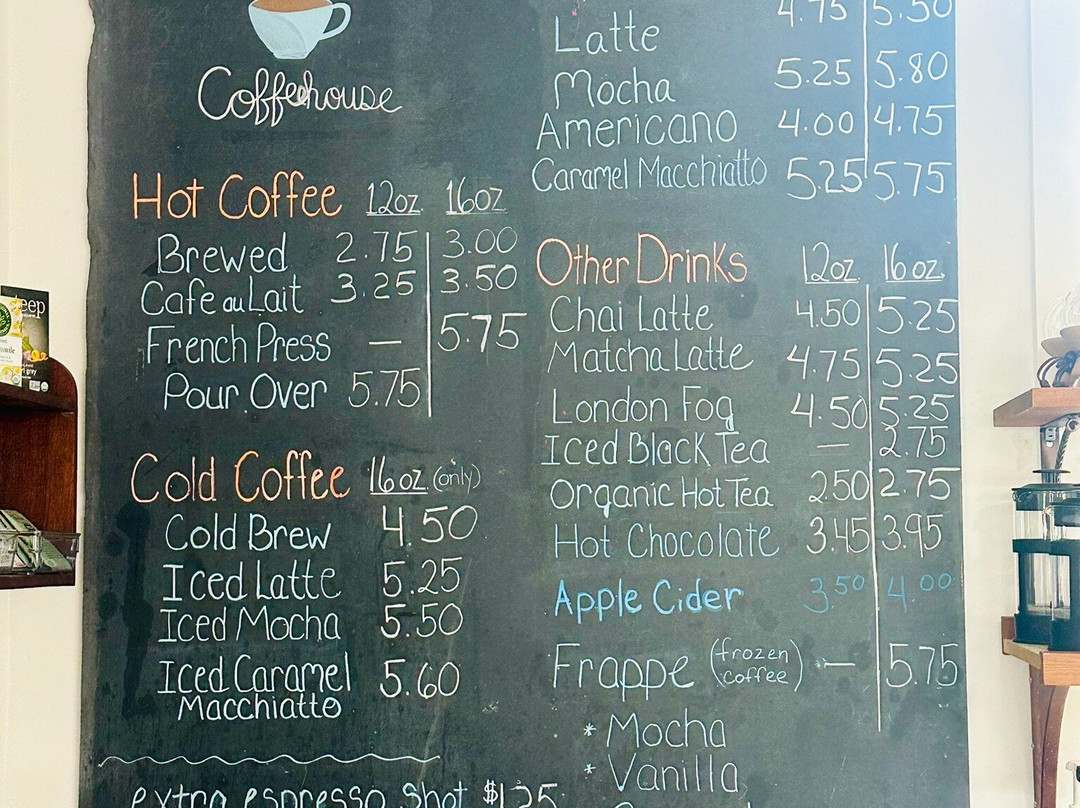 Coffeehouse
Hot Coffee 12oz 16oz
Brewed 2.75 3.00
Cafe au Lait 3.25 3.50
French Press — 5.75
Pour Over 5.75
Cold Coffee 16oz (only)
Cold Brew 4.50
Iced Latte 5.25
Iced Mocha 5.50
Iced Caramel 5.60
Macchiatto
extra espresso shot $1.25
Latte 4.75 5.50
Mocha 5.25 5.80
Americano 4.00 4.75
Caramel Macchiatto 5.25 5.75
Other Drinks 12oz 16oz
Chai Latte 4.50 5.25
Matcha Latte 4.75 5.25
London Fog 4.50 5.25
Iced Black Tea — 2.75
Organic Hot Tea 2.50 2.75
Hot Chocolate 3.45 3.95
Apple Cider 3.50 4.00
Frappe (frozen coffee) — 5.75
* Mocha
* Vanilla